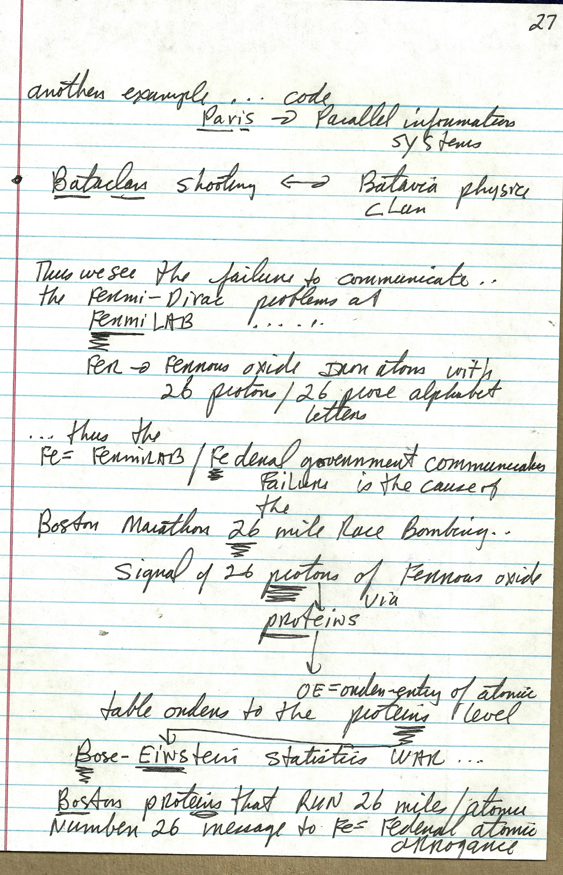 27
another example .... code
Paris → Parallel information
systems
Bataclan shooting ↔ Batavia physics
clan
Thus we see the failure to communicate..
the Fermi-Dirac problems at
FermiLAB ......
FER → Ferrous oxide Iron atoms with
26 protons / 26 prose alphabet
letters
... thus the
Fe = FermiLAB / Federal government communicates
failure is the cause of
the
Boston Marathon 26 mile Race Bombing..
Signal of 26 protons of Ferrous oxide
via
proteins
OE = order-entry of atomic
table orders to the proteins level
Bose-Einstein statistics WAR ...
Boston proteins that RUN 26 miles / atomic
Number 26 message to Fe = Federal atomic
arrogance